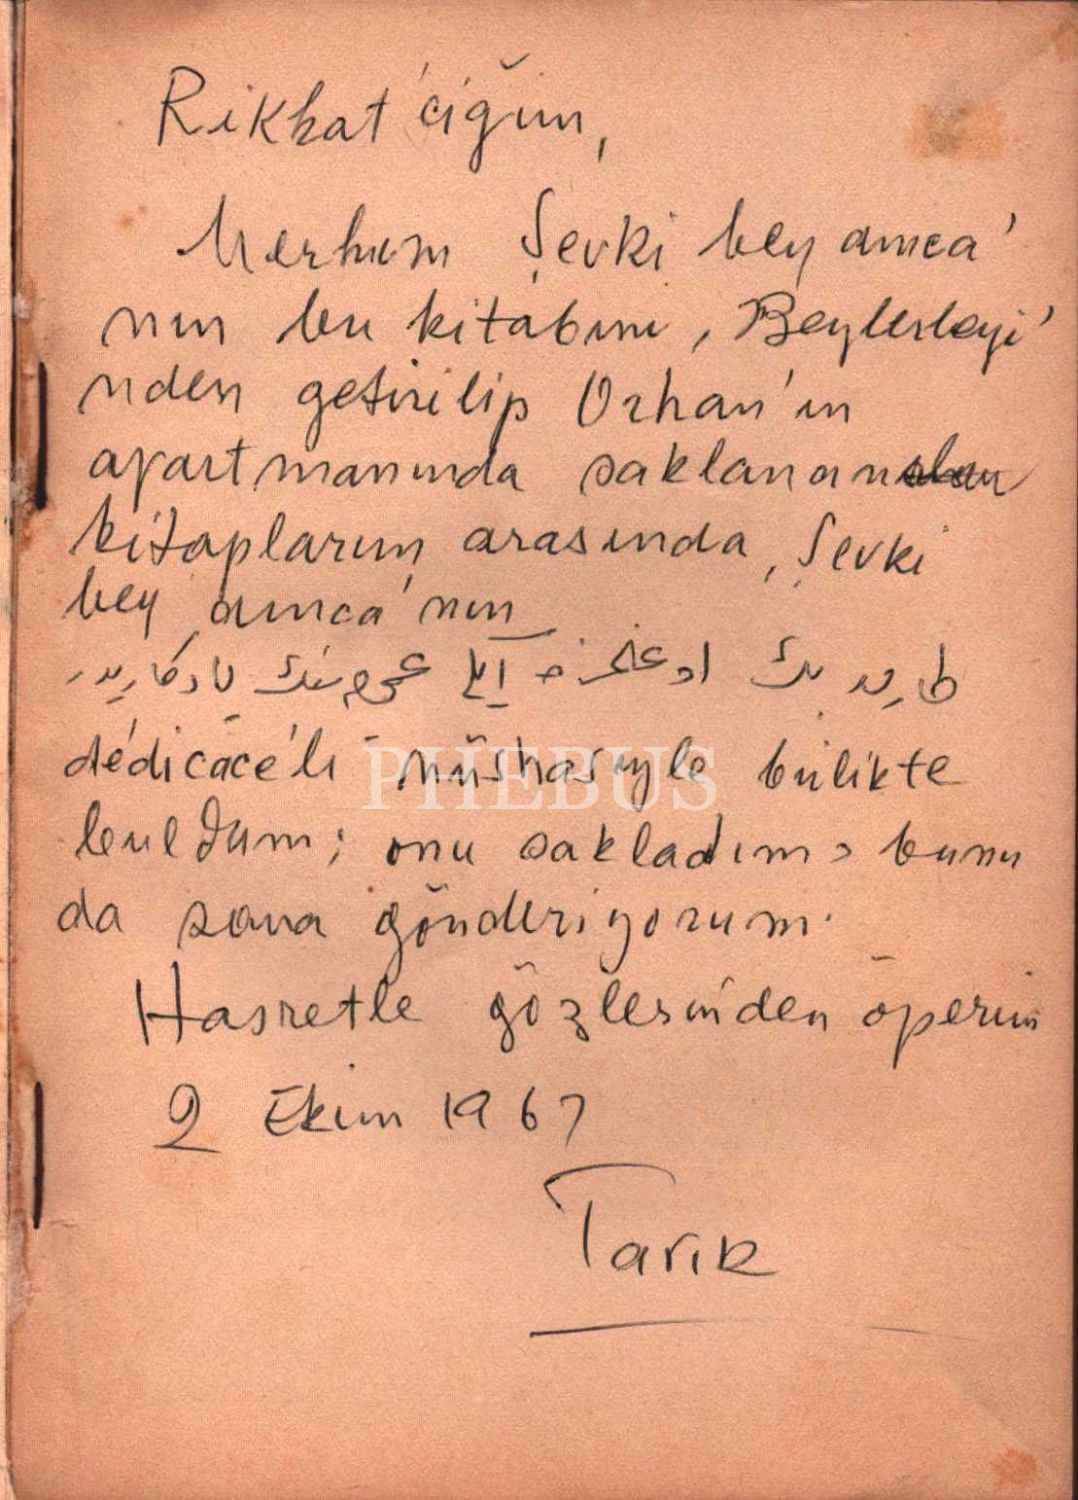 Rikkat'ciğim,
Merhum Şevki bey amca'
nın bu kitabını, Beylerbeyi'
nden getirilip Orhan'ın
apartmanında saklanan
kitaplarım arasında, Şevki
bey amca'nın
طارق بك اوغلمزه
يادكاريدر،
dédicacé'li nüshasıyle birlikte
buldum; onu sakladım, bunu
da sana gönderiyorum.
Hasretle gözlerinden öperim
2 Ekim 1967
Tarık
PHEBUS